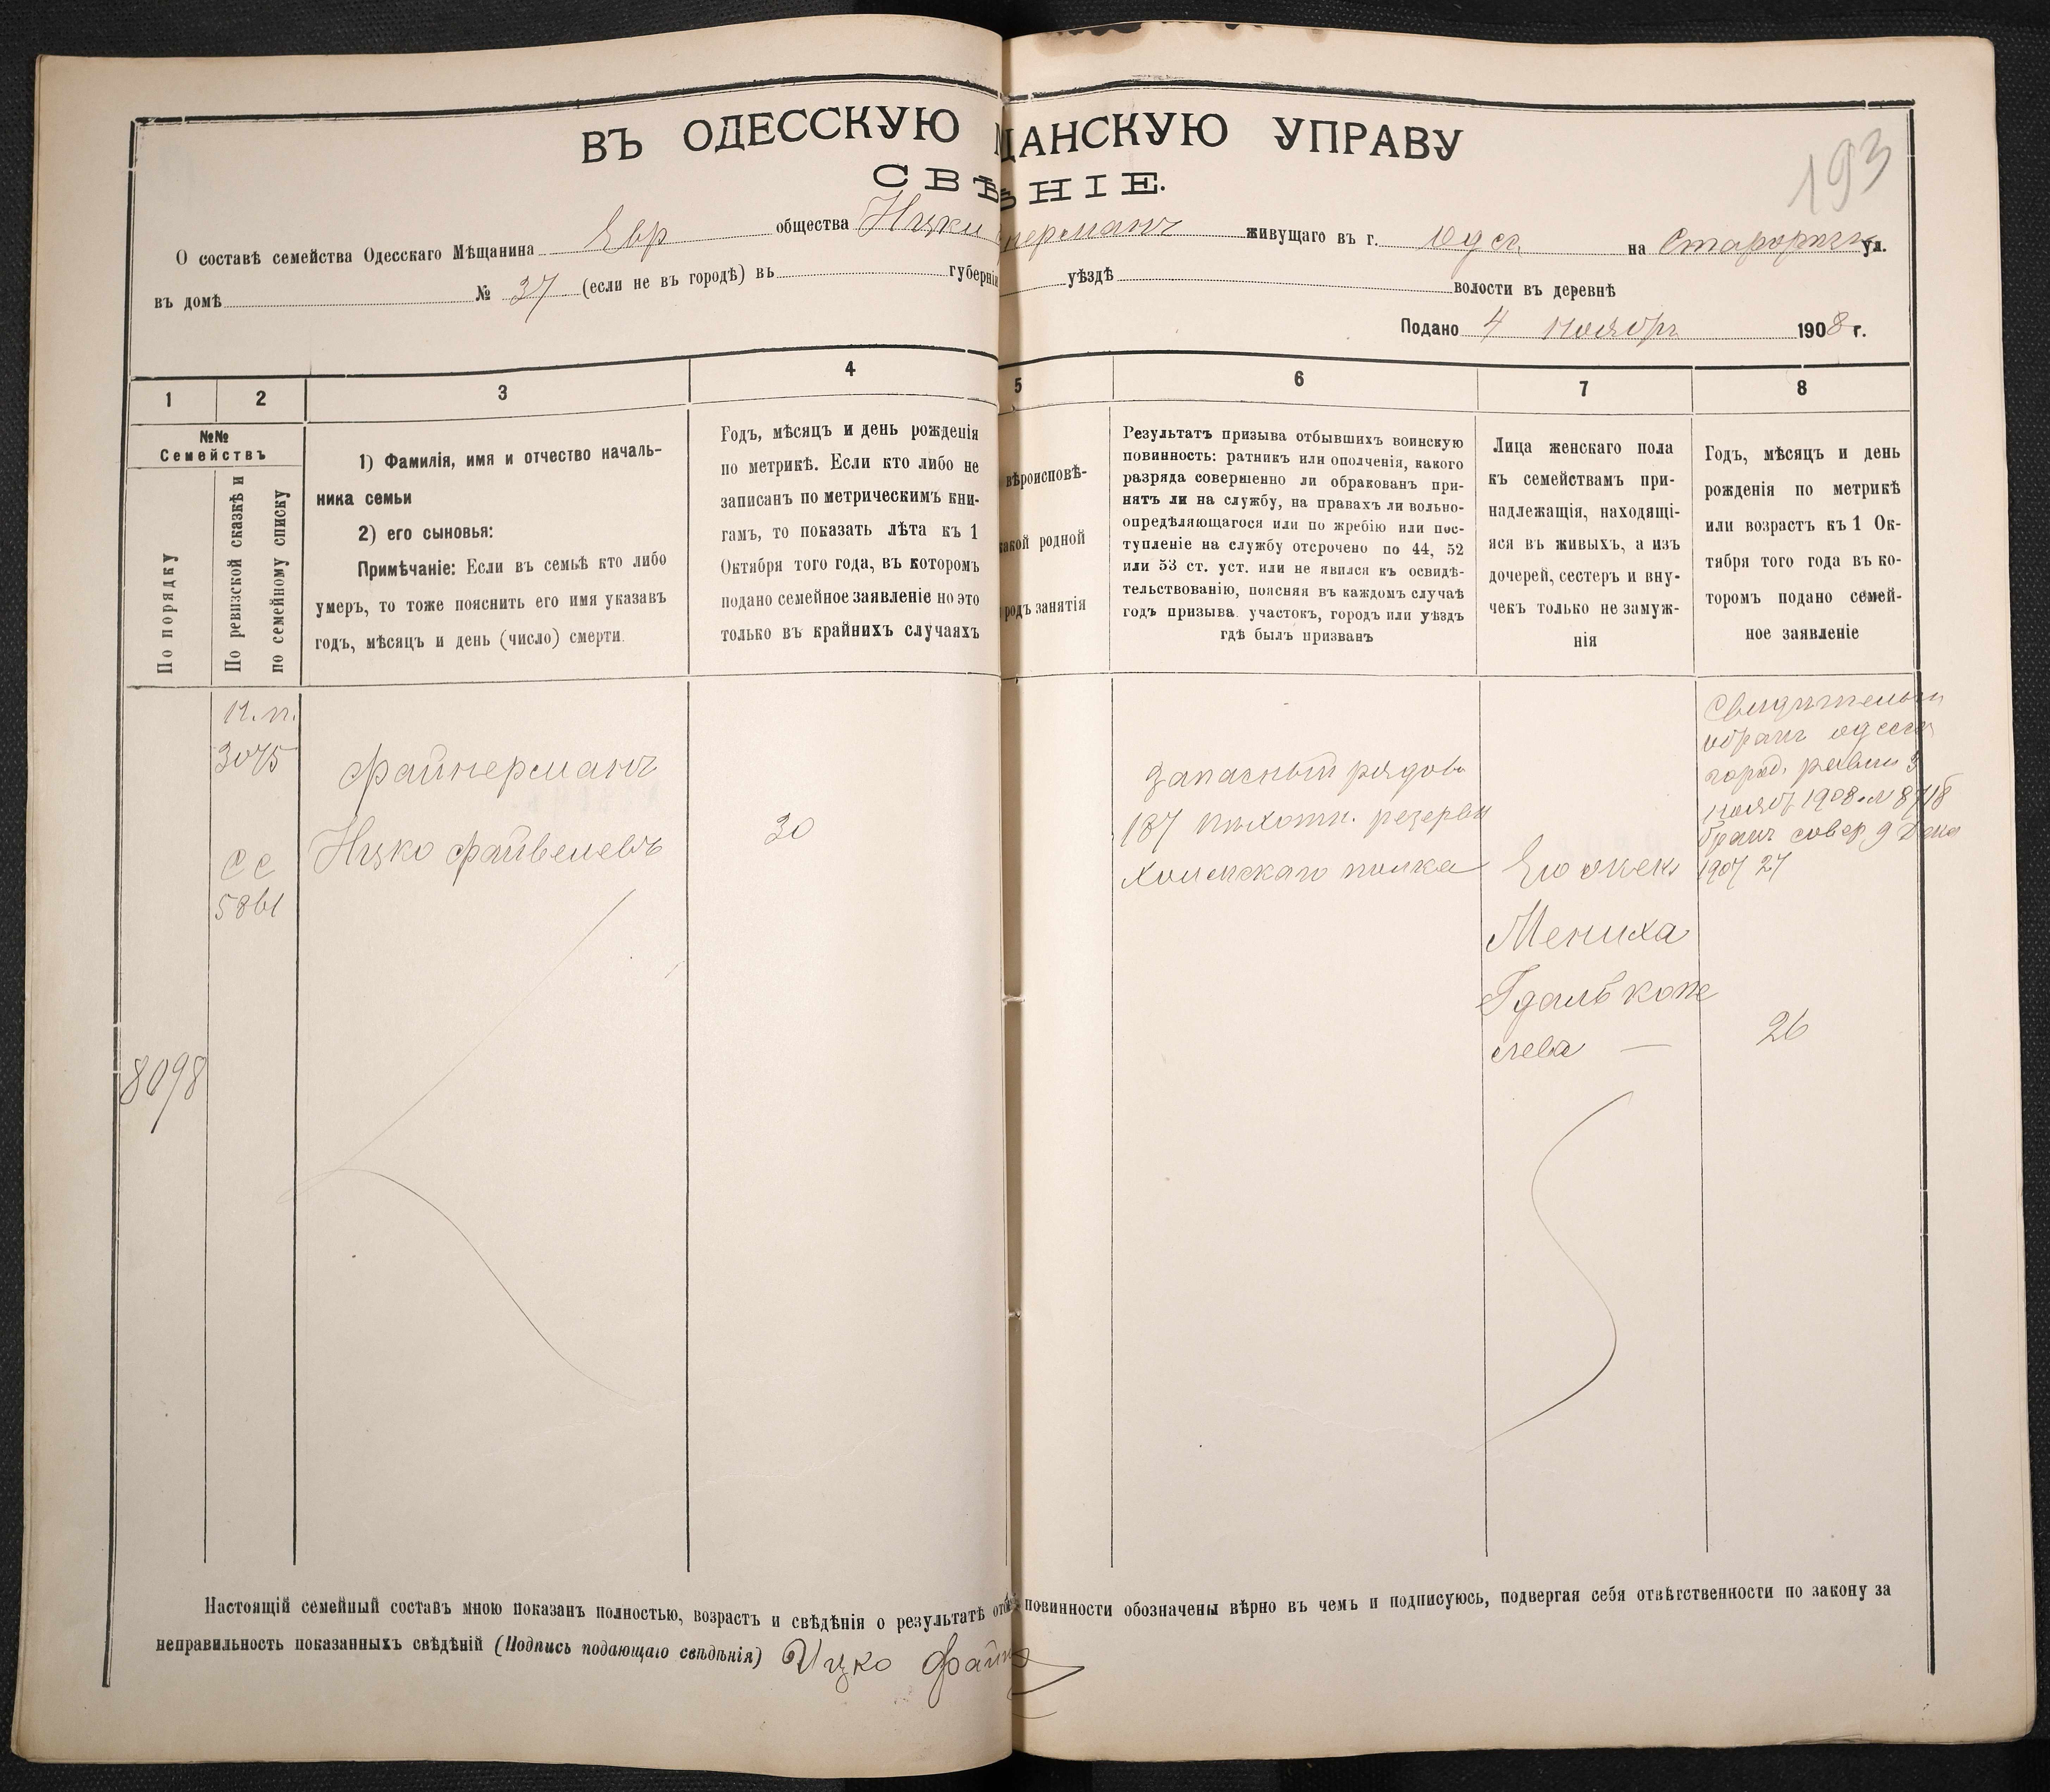 193
ВЪ ОДЕССКУЮ ЩАНСКУЮ УПРАВУ
СВѢ НІЕ.
О составѣ семейства Одесскаго Мѣщанина Евр общества Ицки нерманъ живущаго въ г. Одес. на ул.
въ домѣ № 37 (если не въ городѣ) въ губерніи уѣздѣ волости въ деревнѣ
Подано 4 ноября 1908 г.
1 2 3 4 5 6 7 8
№№
Семействъ
По порядку
По ревизской сказкѣ и
по семейному списку
1) Фамилія, имя и отчество началь-
ника семьи
2) его сыновья:
Примѣчаніе: Если въ семьѣ кто либо
умеръ, то тоже пояснить его имя указавъ
годъ, мѣсяцъ и день (число) смерти.
Годъ, мѣсяцъ и день рожденія
по метрикѣ. Если кто либо не
записанъ по метрическимъ кни-
гамъ, то показать лѣта къ 1
Октября того года, въ которомъ
подано семейное заявленіе но это
только въ крайнихъ случаяхъ
вѣроисповѣ-
акой родной
родъ занятія
Результатъ призыва отбывшихъ воинскую
повинность: ратникъ или ополченія, какого
разряда совершенно ли обракованъ при-
нятъ ли на службу, на правахъ ли вольно-
опредѣляющагося или по жребію или пос-
тупленіе на службу отсрочено по 44, 52
или 53 ст. уст. или не явился къ освидѣ-
тельствованію, поясняя въ каждомъ случаѣ
годъ призыва участокъ, городъ или уѣздъ
гдѣ былъ призванъ
Лица женскаго пола
къ семействамъ при-
надлежащія, находящі-
яся въ живыхъ, а изъ
дочерей, сестеръ и вну-
чекъ только не замуж-
нія
Годъ, мѣсяцъ и день
рожденія по метрикѣ
или возрастъ къ 1 Ок-
тября того года въ ко-
торомъ подано семей-
ное заявленіе
8098
3075
СС
5861
Файнерманъ
Ицко Файвелевъ
30
Запасный рядов
187 пѣхотн. резервн
Холмскаго полка
Его жена
Мениха
26
одесск
город. раввин 3
нояб. 1908 № 8718
1907 27
Настоящій семейный составъ мною показанъ полностью, возрастъ и свѣдѣнія о результатѣ повинности обозначены вѣрно въ чемъ и подписуюсь, подвергая себя отвѣтственности по закону за
неправильность показанныхъ свѣдѣній (Подпись подающаго свѣдѣнія) Ицко Файн